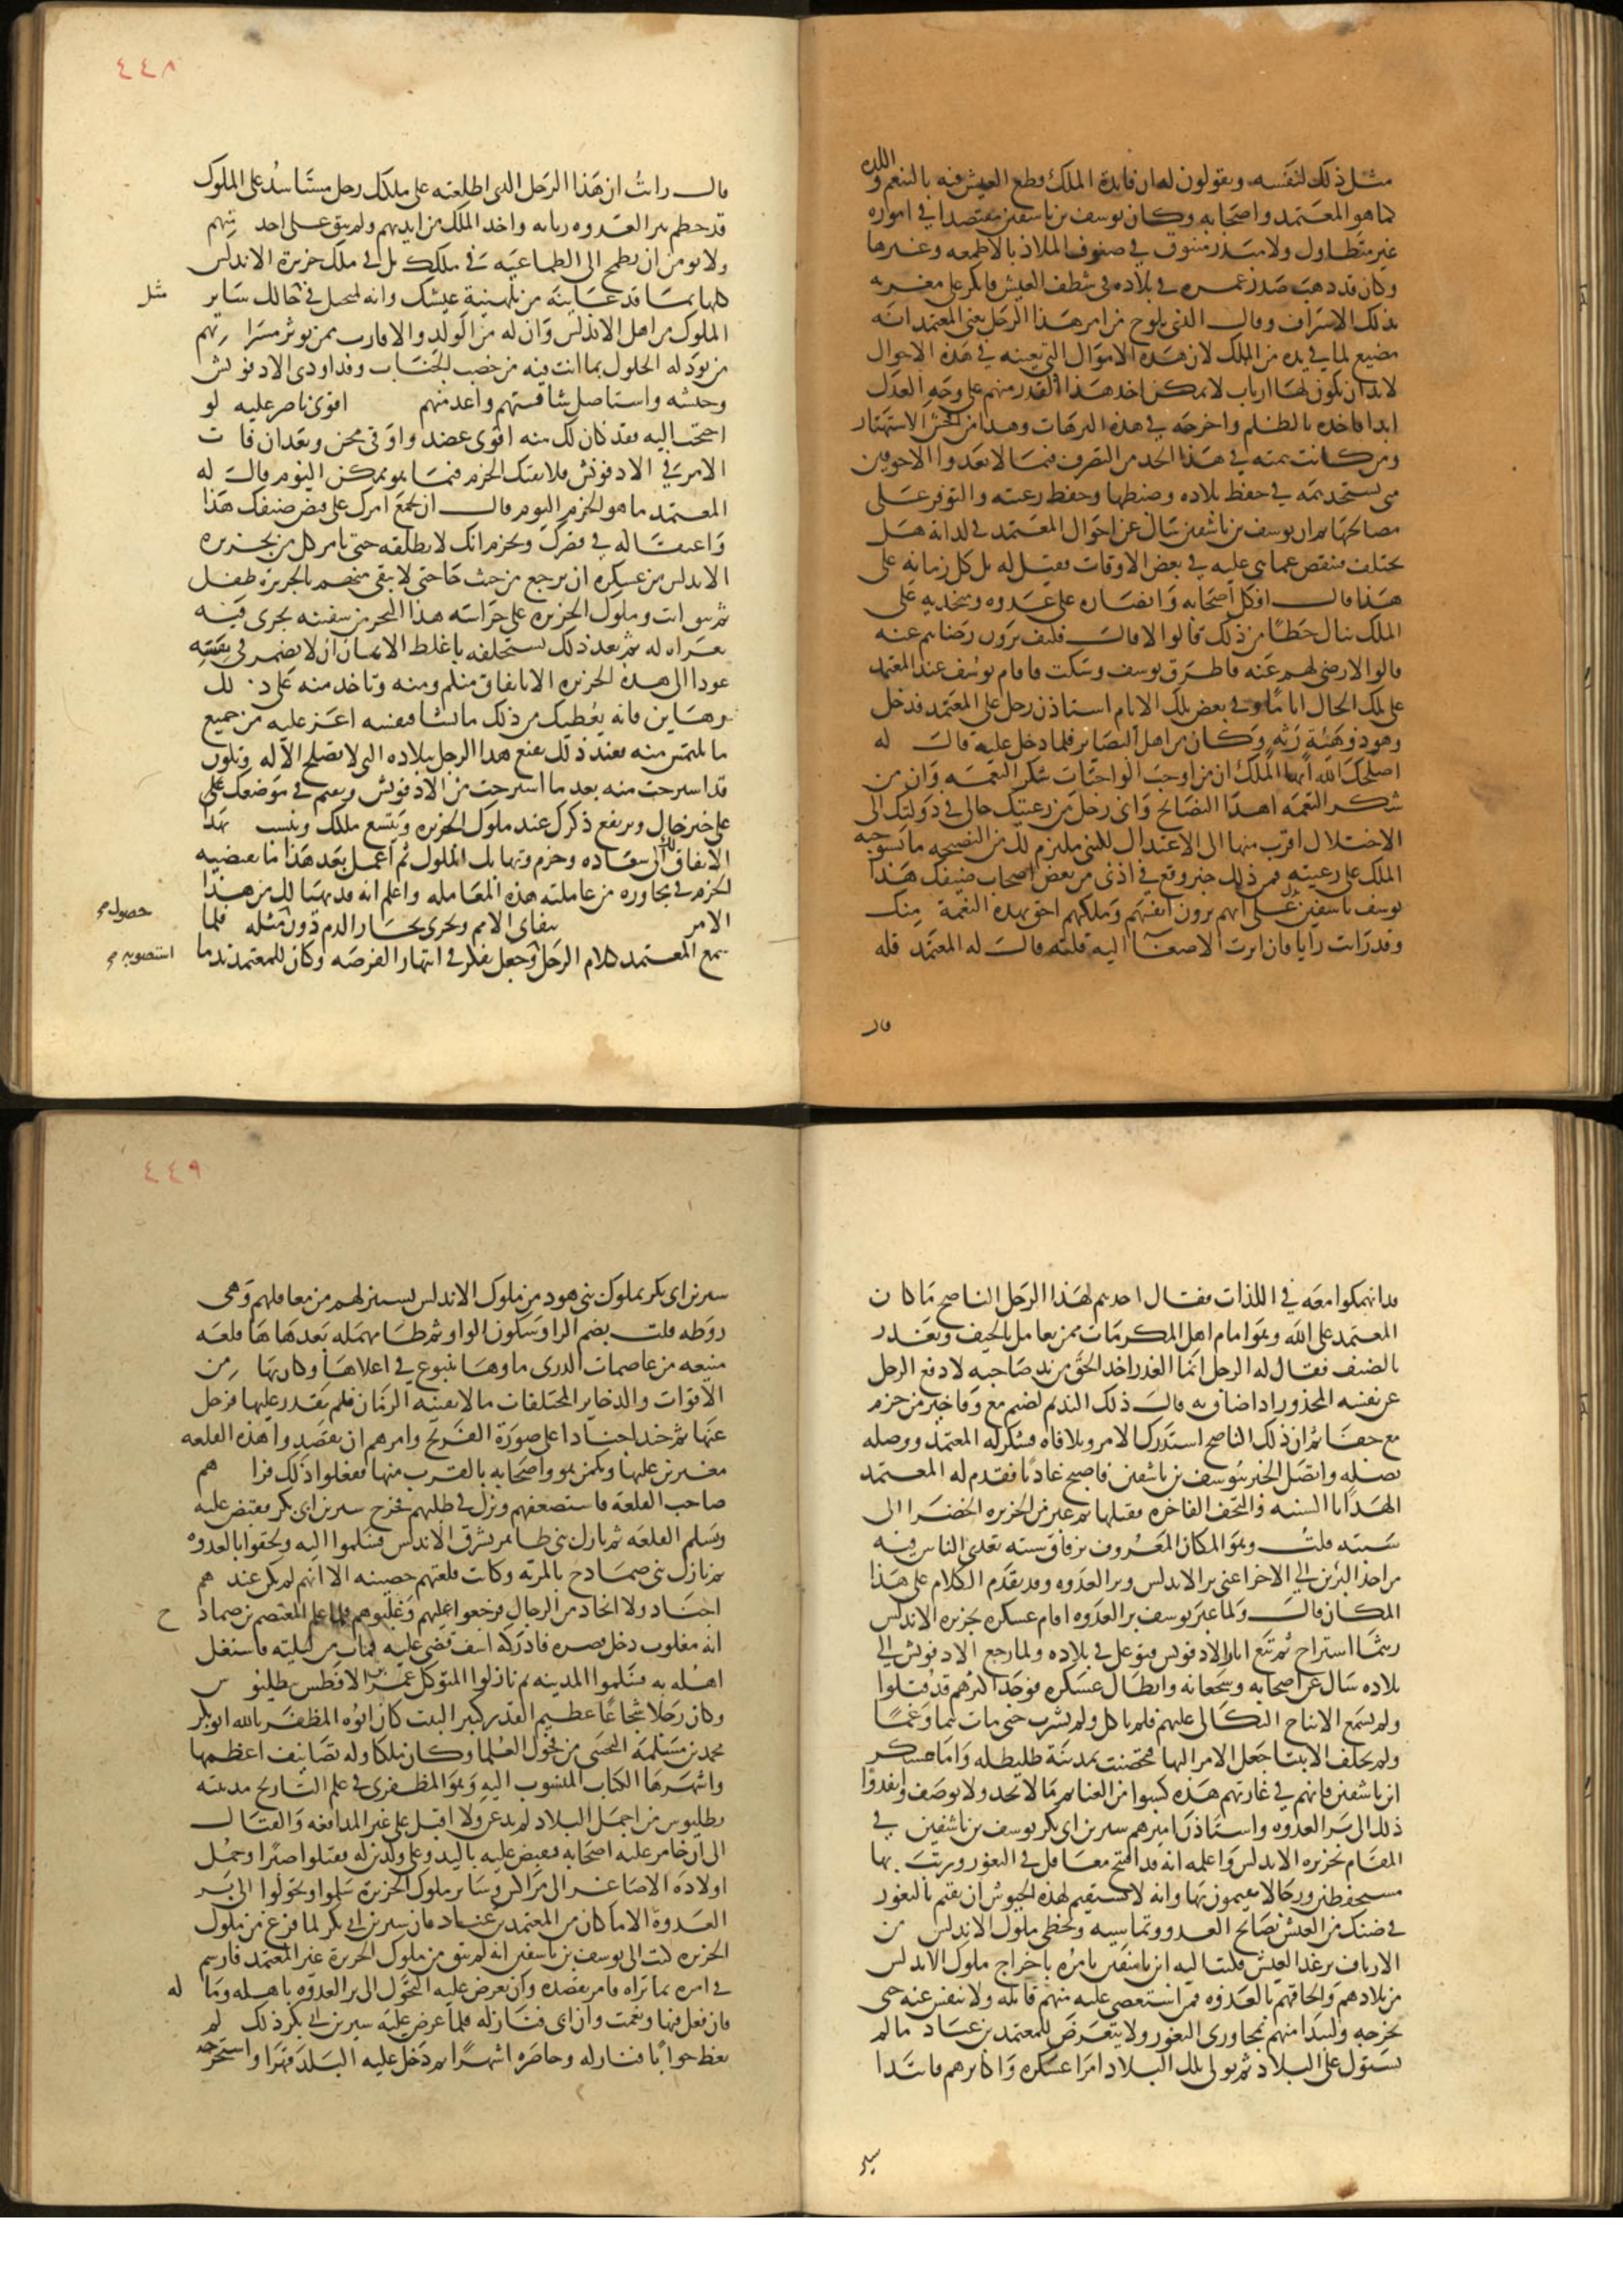 مثل ذلك لنفسه ويقولون له ان فايدة الملك قطع العيش فيه بالتنعم واللذه
كما هو المعتمد واصحابه وكان يوسف بن تاشفين مقتصدا في اموره
غير متطاول ولا مبذر متنوق في صنوف الملاذ بالاطعمه وغيرها
وكان قد ذهب صدر عمره في بلاده في شظف العيش فانكر على مغريه
بذلك الاسراف وقال الذي يلوح من امر هذا الرجل يعني المعتمد انه
مضيع لما في يده من الملك لان هذه الاموال التي تعينه في هذه الاحوال
لابد ان يكون لها ارباب لا يمكن اخذ هذا القدر منهم على وجه العدل
ابدا فاخذه بالظلم واخرجه في هذه الترهات وهذا من افحش الاستهتار
ومن كانت همته في هذا الحد من التصرف فيما لا يعدوا الاجوفين
متى يستجد همه في حفظ بلاده وضبطها وحفظ رعيته والتوفر على
مصالحها ثم ان يوسف بن تاشفين سال عن احوال المعتمد في لذاته هل
تختلف فتنقص عما هي عليه في بعض الاوقات فقيل له بل كل زمانه على
هذا قال افكل اصحابه وانصاره على عدوه ومنجديه على
الملك ينال حظا من ذلك قالوا لا قال فكيف ترون رضاهم عنه
قالوا لا رضى لهم عنه فاطرق يوسف وسكت فاقام يوسف عند المعتمد
على تلك الحال اياما وفي بعض تلك الايام استاذن رجل على المعتمد فدخل
وهو ذو هيئة رثه وكان من اهل البصاير فلما دخل عليه قال له
اصلحك الله ايها الملك ان من اوجب الواجبات شكر النعمه وان من
شكر النعمه اهدا النصايح واني رجل من رعيتك حالي في دولتك الى
الاختلال اقرب منها الى الاعتدال لكنني ملتزم لك من النصيحه ما يستوجبه
الملك على رعيته فمن ذلك خبر وقع في اذني من بعض اصحاب ضيفك هذا
يوسف بن تاشفين يدل على انهم يرون انفسهم وملكهم احق بهذه النعمة منك
وقد رايت رايا فان اثرت الاصغا اليه قلته قال له المعتمد قله
قال
٤٤٨
قال رايت ان هذا الرجل الذي اطلعته على ملكك رجل مستاسد على الملوك
قد حطم ببر العدوه زناته واخذ الملك من ايديهم ولم يبق على احد منهم
ولا يومن ان يطمح الى الطماعيه في ملكك بل في ملك جزيرة الاندلس
كلها لما قد عاينه من بلهنية عيشك وانه لمتخيل في حالك ساير
مثل
الملوك من اهل الاندلس وان له من الولد والاقارب ممن يوثر مسراتهم
من يود له الحلول بما انت فيه من خصب الجناب وقد اودى الادفونش
وجيشه واستاصل شافتهم واعدمهم اقوى ناصر عليه لو
احتجت اليه فقد كان لك منه اقوى عضد واوقى مجن وبعد ان فات
الامر في الادفونش فلا يفتك الحزم فيما هو ممكن اليوم قال له
المعتمد ما هو الحزم اليوم قال ان تجمع امرك على قبض ضيفك هذا
واعتقاله في قصرك وتجزم انك لا تطلقه حتى يامر كل من بجزيره
الاندلس من عسكره ان يرجع من حيث جا حتى لا يبقى منهم بالجزيره طفل
ثم تتفق انت وملوك الجزيره على حراسه هذا البحر من سفينه تجري فيه
بغزاه له ثم بعد ذلك تستحلفه باغلظ الايمان ان لا يضمر في نفسه
عودا الى هذه الجزيره الا باتفاق منكم ومنه وتاخذ منه على ذلك
رهاين فانه يعطيك من ذلك ما تشا فنفسه اعز عليه من جميع
ما تلتمس منه فعند ذلك يقنع هذا الرجل ببلاده التي لا تصلح الا له وتكون
قد استرحت منه بعد ما استرحت من الادفونش وتقيم في موضعك على
على خير حال ويرتفع ذكرك عند ملوك الجزيره ويتسع ملكك وينسب بهذا
الاتفاق لك الى سعاده وحزم وتهابك الملوك ثم اعمل بعد هذا ما يقتضيه
الحزم في مجاوره من عاملته هذه المعامله واعلم انه قد تهيا لك من هذا
حصوله صح
الامر تتفانى الامم وتجري بحار الدم دون مثله فلما
سمع المعتمد كلام الرجل وجعل يفكر في انتهاز الفرصه وكان للمعتمد ندما
استصوبه صح
قد انهمكوا معه في اللذات فقال احدهم لهذا الرجل الناصح ما كان
المعتمد على الله وهو امام اهل المكرمات ممن يعامل بالحيف ويغدر
بالضيف فقال له الرجل انما الغدر اخذ الحق من يد صاحبه لا دفع الرجل
عن نفسه المحذور اذا ضاق به قال ذلك النديم لضيم مع وفا خير من حزم
مع جفا ثم ان ذلك الناصح استدرك الامر وتلافاه فشكر له المعتمد ووصله
بصله واتصل الخبر بيوسف بن تاشفين فاصبح غاديا فقدم له المعتمد
الهدايا السنيه والتحف الفاخره فقبلها ثم عبر من الجزيره الخضرا الى
سبته قلت وهو المكان المعروف بزقاق سبته تعدى الناس فيه
من احد البرين الى الاخر اعني بر الاندلس وبر العدوه وقد تقدم الكلام على هذا
المكان قال ولما عبر يوسف بر العدوه اقام عسكره بجزيره الاندلس
ريثما استراح ثم تتبع اثار الادفونش فتوغل في بلاده ولما رجع الادفونش الى
بلاده سال عن اصحابه وشجعانه وابطال عسكره فوجد اكثرهم قد قتلوا
ولم يسمع الا نياح الثكالى عليهم فلم ياكل ولم يشرب حتى مات هما وغما
ولم يخلف الا بنتا جعل الامر اليها فتحصنت بمدينة طليطله واما عسكر
ابن تاشفين فانهم في غارتهم هذه كسبوا من الغنايم ما لا يحد ولا يوصف وانفذوا
ذلك الى بر العدوه واستاذن اميرهم سير بن ابي بكر يوسف بن تاشفين في
المقام بجزيره الاندلس واعلمه انه قد افتتح معاقل في الثغور ورتب بها
مستحفظين ورجالا يقيمون بها وانه لا تستقيم لهذه الجيوش ان تقيم بالثغور
في ضنك من العيش تصابح العدو وتماسيه وتحظى ملوك الاندلس من
الارياف برغد العيش فكتب اليه ابن تاشفين يامره باخراج ملوك الاندلس
من بلادهم والحاقهم بالعدوه فمن استعصى عليه منهم قاتله ولا ينفس عنه حتى
يخرجه وليبدا منهم بمجاوري الثغور ولا يتعرض للمعتمد بن عباد ما لم
يستول على البلاد ثم يولي تلك البلاد امرا عسكره واكابرهم فابتدا
سير
٤٤٩
سير بن ابي بكر بملوك بني هود من ملوك الاندلس ليستنزلهم من معاقلهم وهي
روطه قلت بضم الرا وسكون الواو ثم طا مهمله بعدها ها قلعه
منيعه من عاصمات الذرى ماوها ينبوع في اعلاها وكان بها من
الاقوات والذخاير المختلفات ما لا يفنيه الزمان فلم يقدر عليها فرحل
عنها ثم جند اجنادا على صورة الفرنج وامرهم ان يقصدوا هذه القلعه
مغيرين عليها ويكمن هو واصحابه بالقرب منها ففعلوا ذلك فراهم
صاحب القلعه فاستضعفهم ونزل في طلبهم فخرج سير بن ابي بكر فقبض عليه
وتسلم القلعه ثم نازل بني طاهر بشرق الاندلس فسلموا اليه ولحقوا بالعدوه
ثم نازل بني صمادح بالمريه وكانت قلعتهم حصينه الا انهم لم يكن عندهم
اجناد ولا انجاد من الرجال فزحفوا عليهم وغلبوهم فلما علم المعتصم بن صمادح
انه مغلوب دخل قصره فادركه اسف قضى عليه فمات من ليلته فاشتغل
اهله به فسلموا المدينه ثم نازلوا المتوكل عمر بن الافطس ببطليوس
وكان رجلا شجاعا عظيم القدر كبير البيت كان ابوه المظفر بالله ابو بكر
محمد بن مسلمة التجيبي من فحول العلما وكان ملكا وله تصانيف اعظمها
واشهرها الكتاب المنسوب اليه وهو المظفري في علم التاريخ مدينته
بطليوس من اجمل البلاد لم يدعن ولا اقبل على غير المدافعه والقتال
الى ان خامر عليه اصحابه فقبض عليه باليد وعلى ولدين له فقتلوا صبرا وحمل
اولاده الاصاغر الى مراكش وساير ملوك الجزيرة سلموا وتحولوا الى بر
العدوة الا ما كان من المعتمد بن عباد فان سير بن ابي بكر لما فرغ من ملوك
الجزيره كتب الى يوسف بن تاشفين انه لم يبق من ملوك الجزيرة غير المعتمد فارسم
في امره بما تراه فامر بقصده وان يعرض عليه التحول الى بر العدوه باهله وما له
فان فعل فبها ونعمت وان ابى فنازله فلما عرض عليه سير بن ابي بكر ذلك لم
يعط جوابا فنازله وحاصره اشهرا ثم دخل عليه البلد قهرا واستخرجه